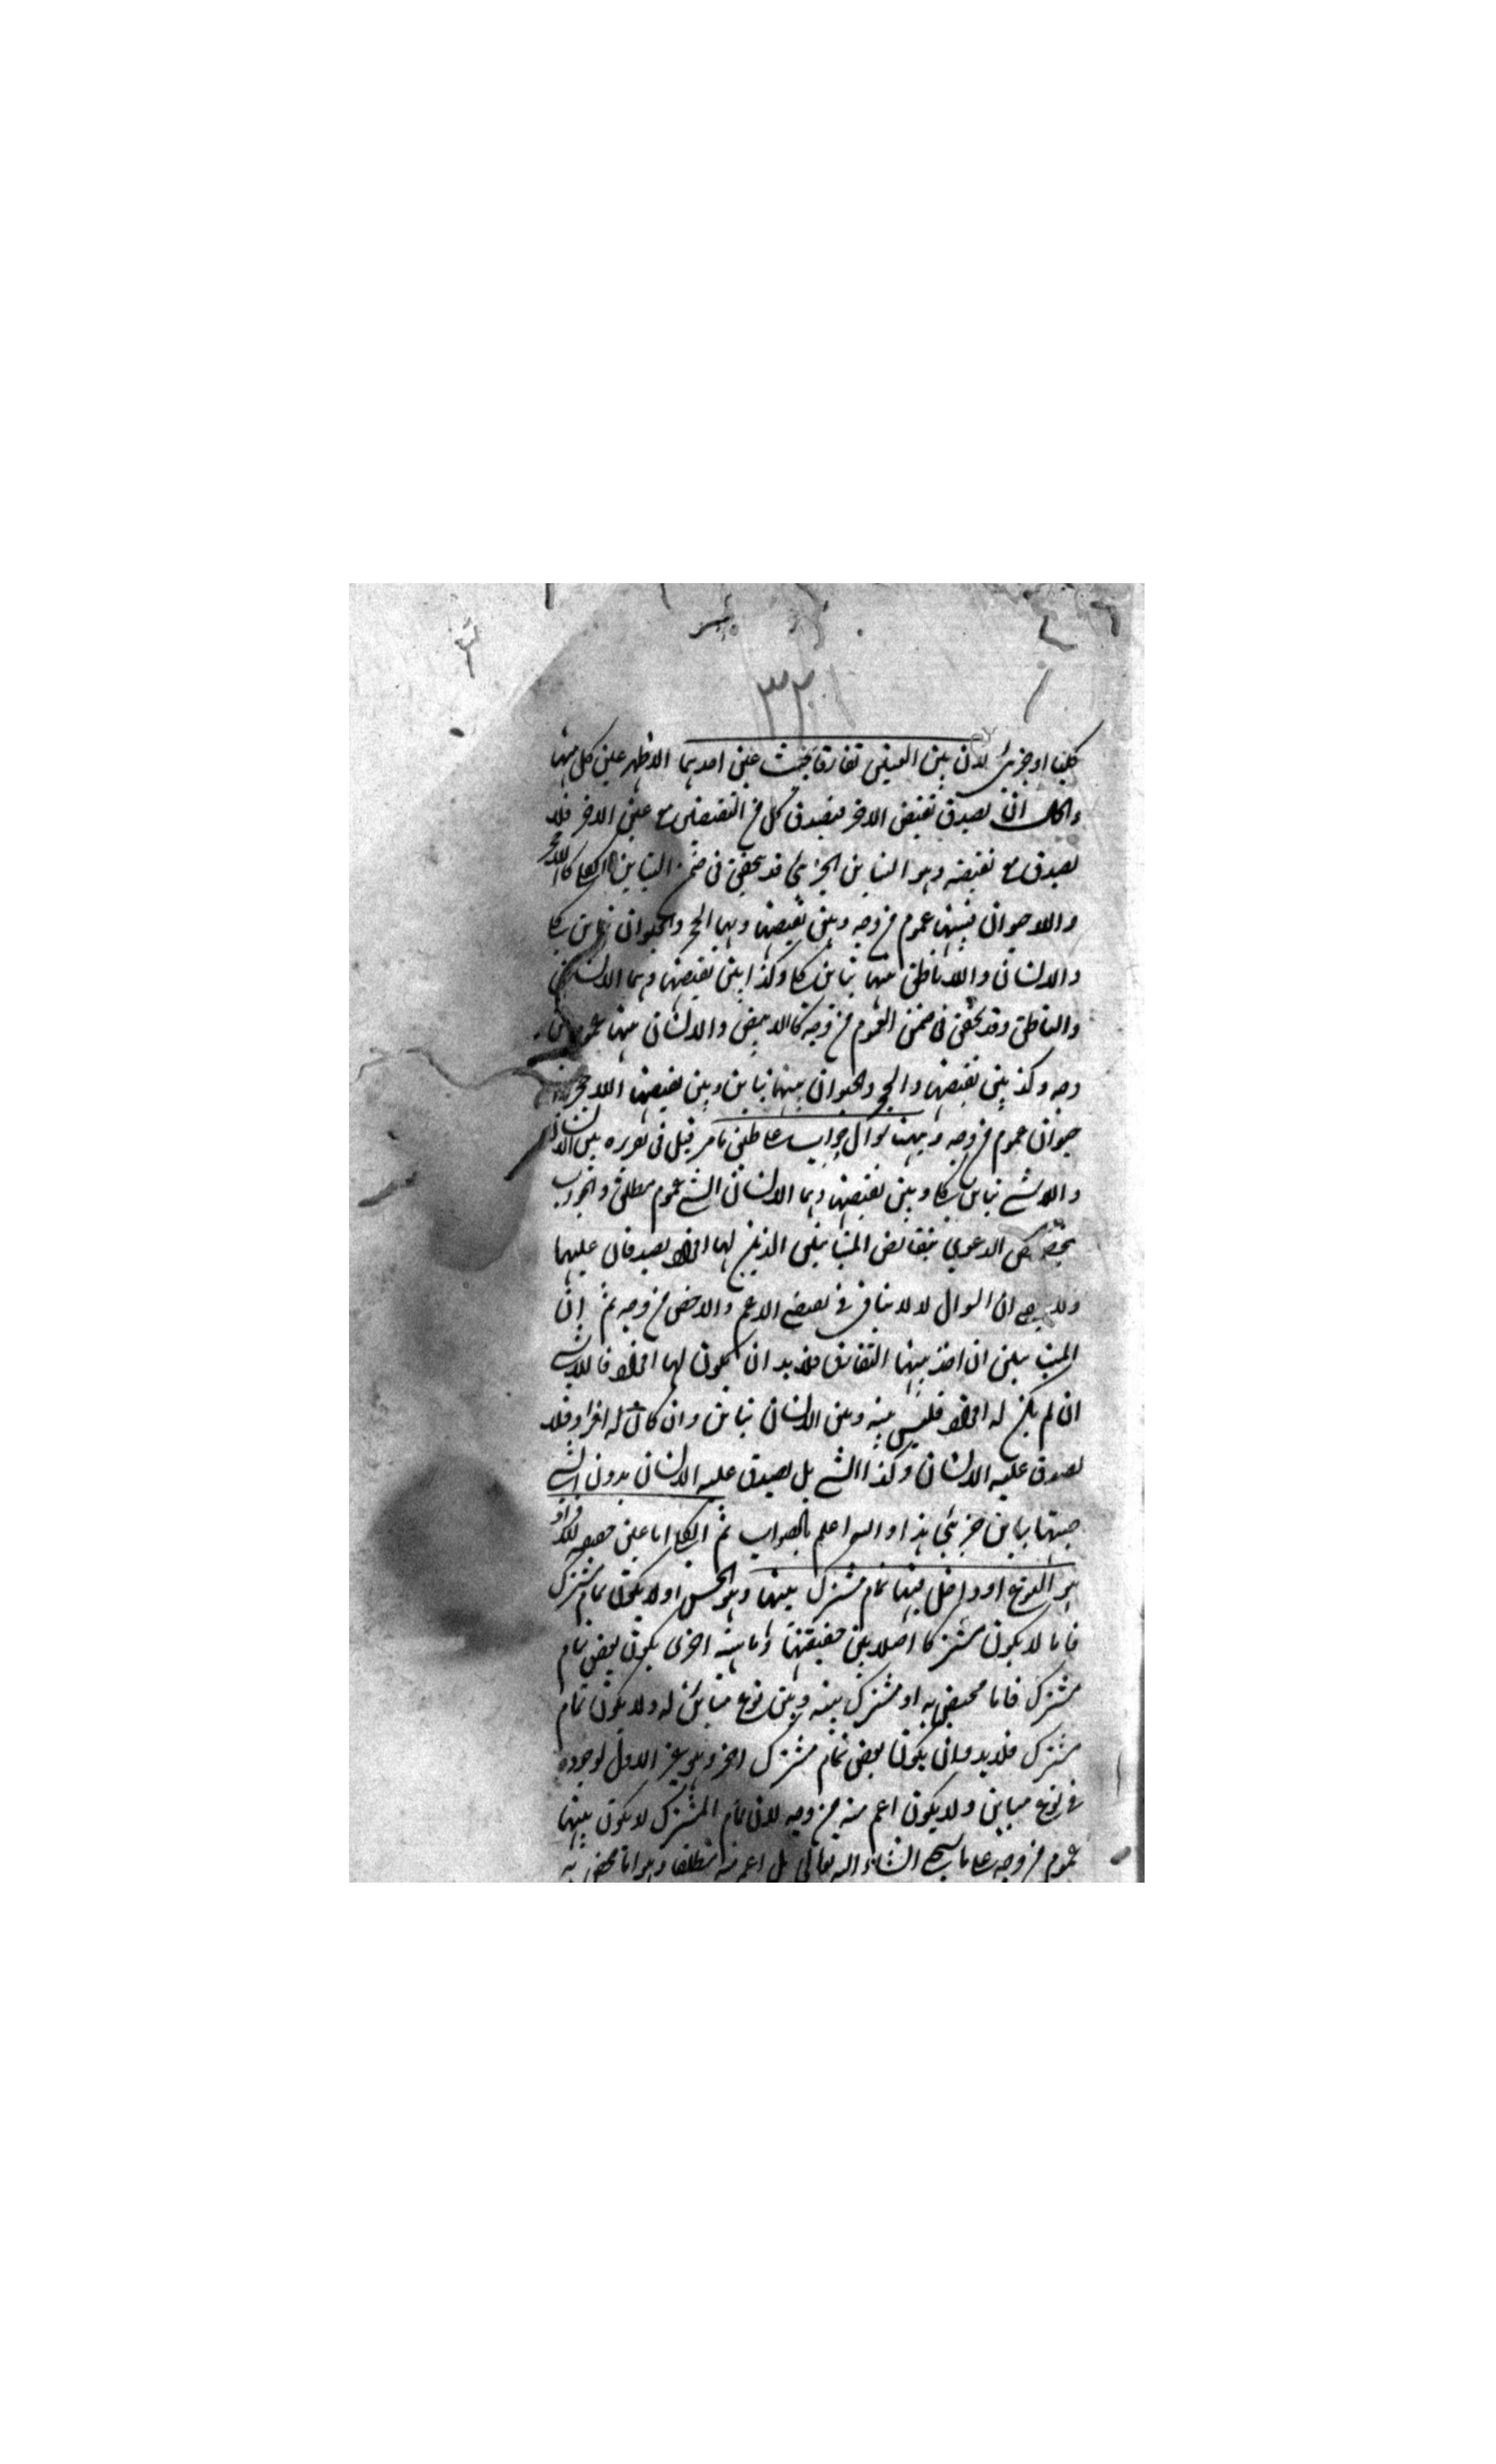 ٣٢٠
كليا او جزئى لان بين العينين تفارقا فحيث عين احدهما الاظهر عين كل منهما
والكل ان يصدق نقيض الاخر فيصدق كل من النقيضين مع عين الاخر فلا
يصدق مع نقيضه وهو التباين الجزئى قد يتحقق فى ضمن التباين الكلى كاللاحجر
واللاحيوان فبينهما عموم من وجه وبين نقيضهما وهما الحجر والحيوان تباين كلى
والانسان واللاناطق بينهما تباين كلى وكذا بين نقيضهما وهما اللاانسان
والناطق وقد يتحقق فى ضمن العموم من وجه كالابيض والانسان بينهما عموم من
وجه وكذ بين نقيضهما والحجر والحيوان بينهما تباين وبين نقيضهما اللاحجر
حيوان عموم من وجه وههنا سوال وجواب على طبق ما مر قيل فى تقريره بين الانسان
واللاشى تباين كلى وبين نقيضهما وهما اللاانسان الشى عموم مطلق والجواب
بتخصيص الدعوى بنقائض المتباينين الذين لهما افراد يصدقان عليهما
ولا ان السوال لا ينافى فى نقيضى الاعم والاخص من وجه ثم ان
المتباينين ان اخذ بينهما التفارق فلابد ان يكون لهما افراد فاللاشى
ان لم يكن له افراد فليس بينه وبين الانسان تباين وان كان له افراد فلا
يصدق عليه الانسان وكذا الشى بل يصدق عليه اللاانسان بدون الشى
فبينهما تباين جزئى هذا والله اعلم بالصواب ثم الكلى اما عين حقيقة الافراد
هو النوع او داخل فيها تمام مشترك بينهما وهو الجنس او لا يكون تمام مشترك
فاما لا يكون مشتركا اصلا بين حقيقتها وماهية اخرى يكون بعض تمام
مشترك فاما مختص به او مشترك بينه وبين نوع مباين له ولا يكون تمام
مشترك فلابد وان يكون بعض تمام مشترك اخر وهو غير الاول لوجوده
فى نوع مباين ولا يكون اعم منه من وجه لان تمام المشترك لا يكون بينهما
عموم من وجه على ما سيجى انشاء الله تعالى بل اعم منه مطلقا وهو اما مختص به